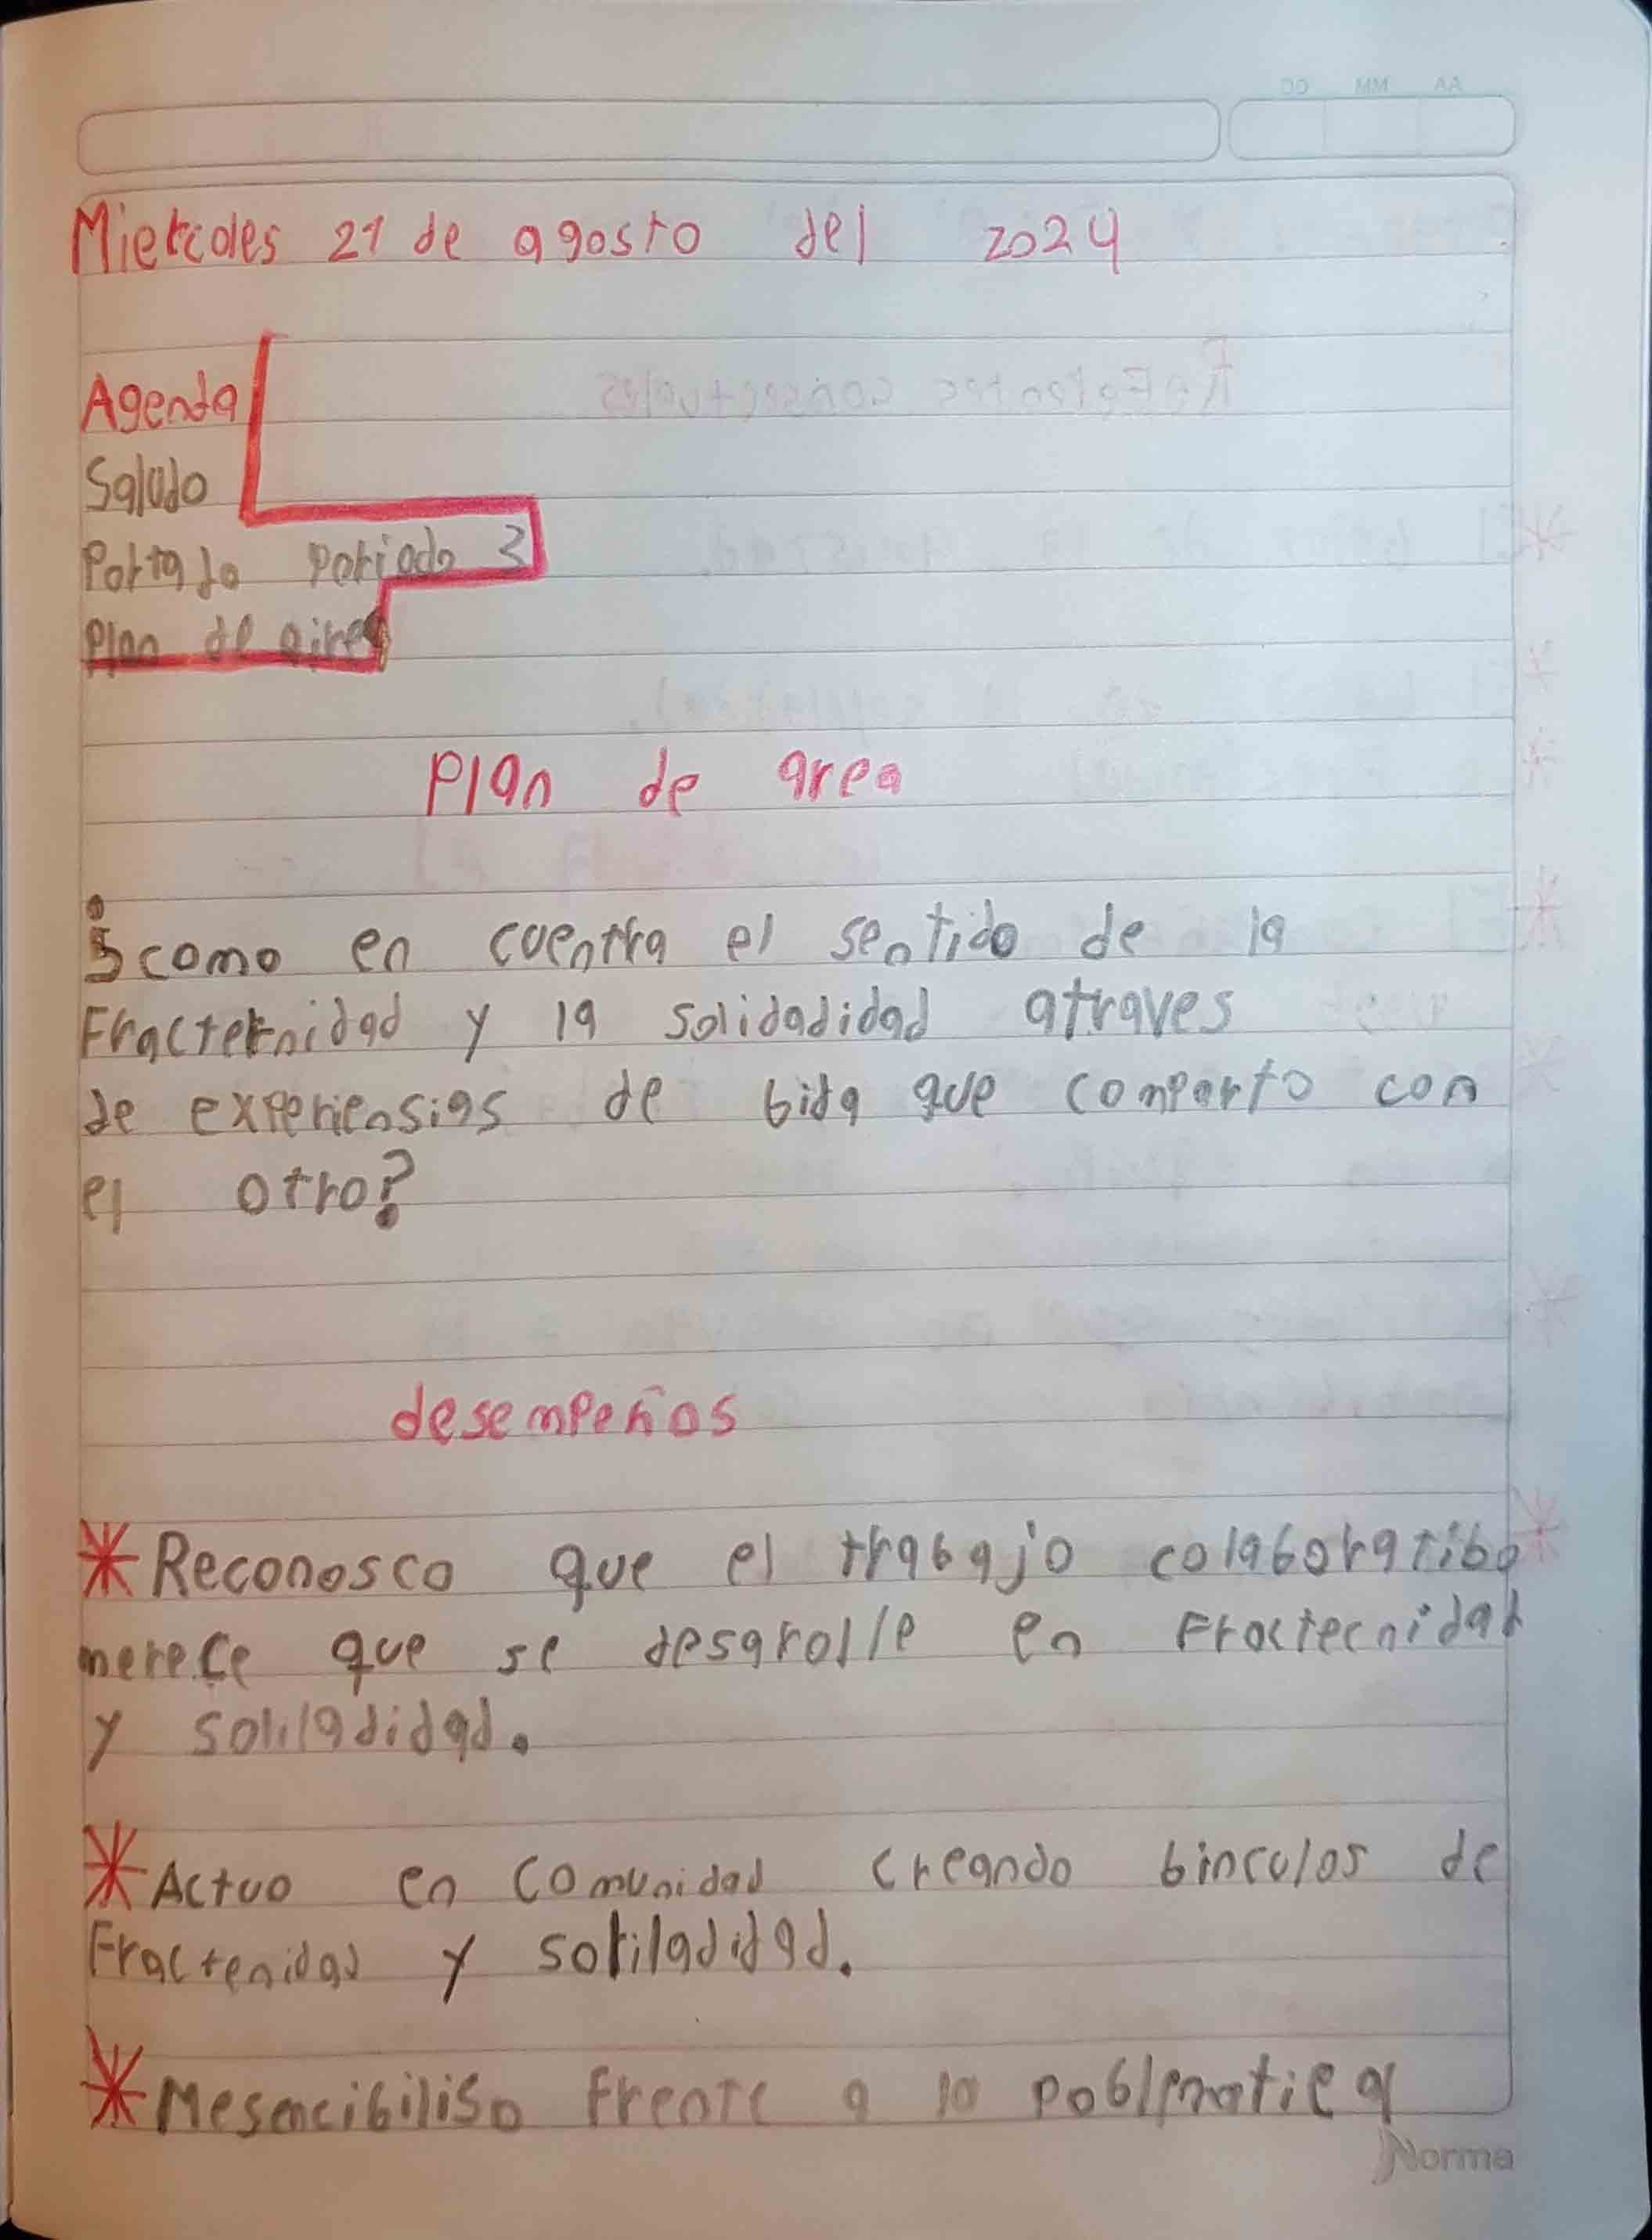 Miercoles 21 de agosto del 2024
Agenda
Saludo
Portada Periodo 3
Plan de aire
Plan de area
¿como en cuentra el sentido de la
Fracternidad y la solidadidad atraves
de experiensias de bida que comparto con
el otro?
desempeños
* Reconosco que el trabajo colaboratibo
merece que se desarolle en Fractecnidad
y soliladidad.
* Actuo en comunidad creando binculos de
Fractenidad y soliladidad.
* Mesencibiliso frente a la poblematica
Norma